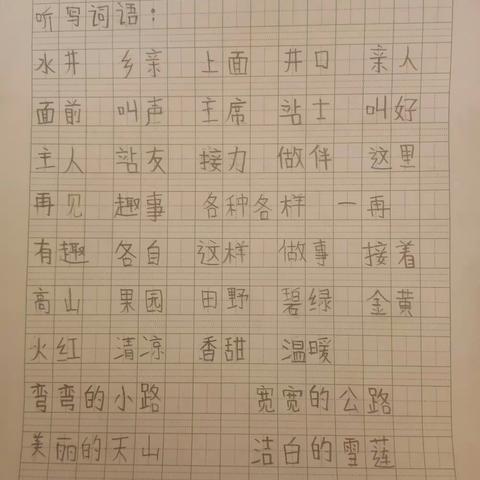 听写词语：
水井 乡亲 上面 井口 亲人
面前 叫声 主席 站士 叫好
主人 站友 接力 做伴 这里
再见 趣事 各种各样 一再
有趣 各自 这样 做事 接着
高山 果园 田野 碧绿 金黄
火红 清凉 香甜 温暖
弯弯的小路 宽宽的公路
美丽的天山 洁白的雪莲